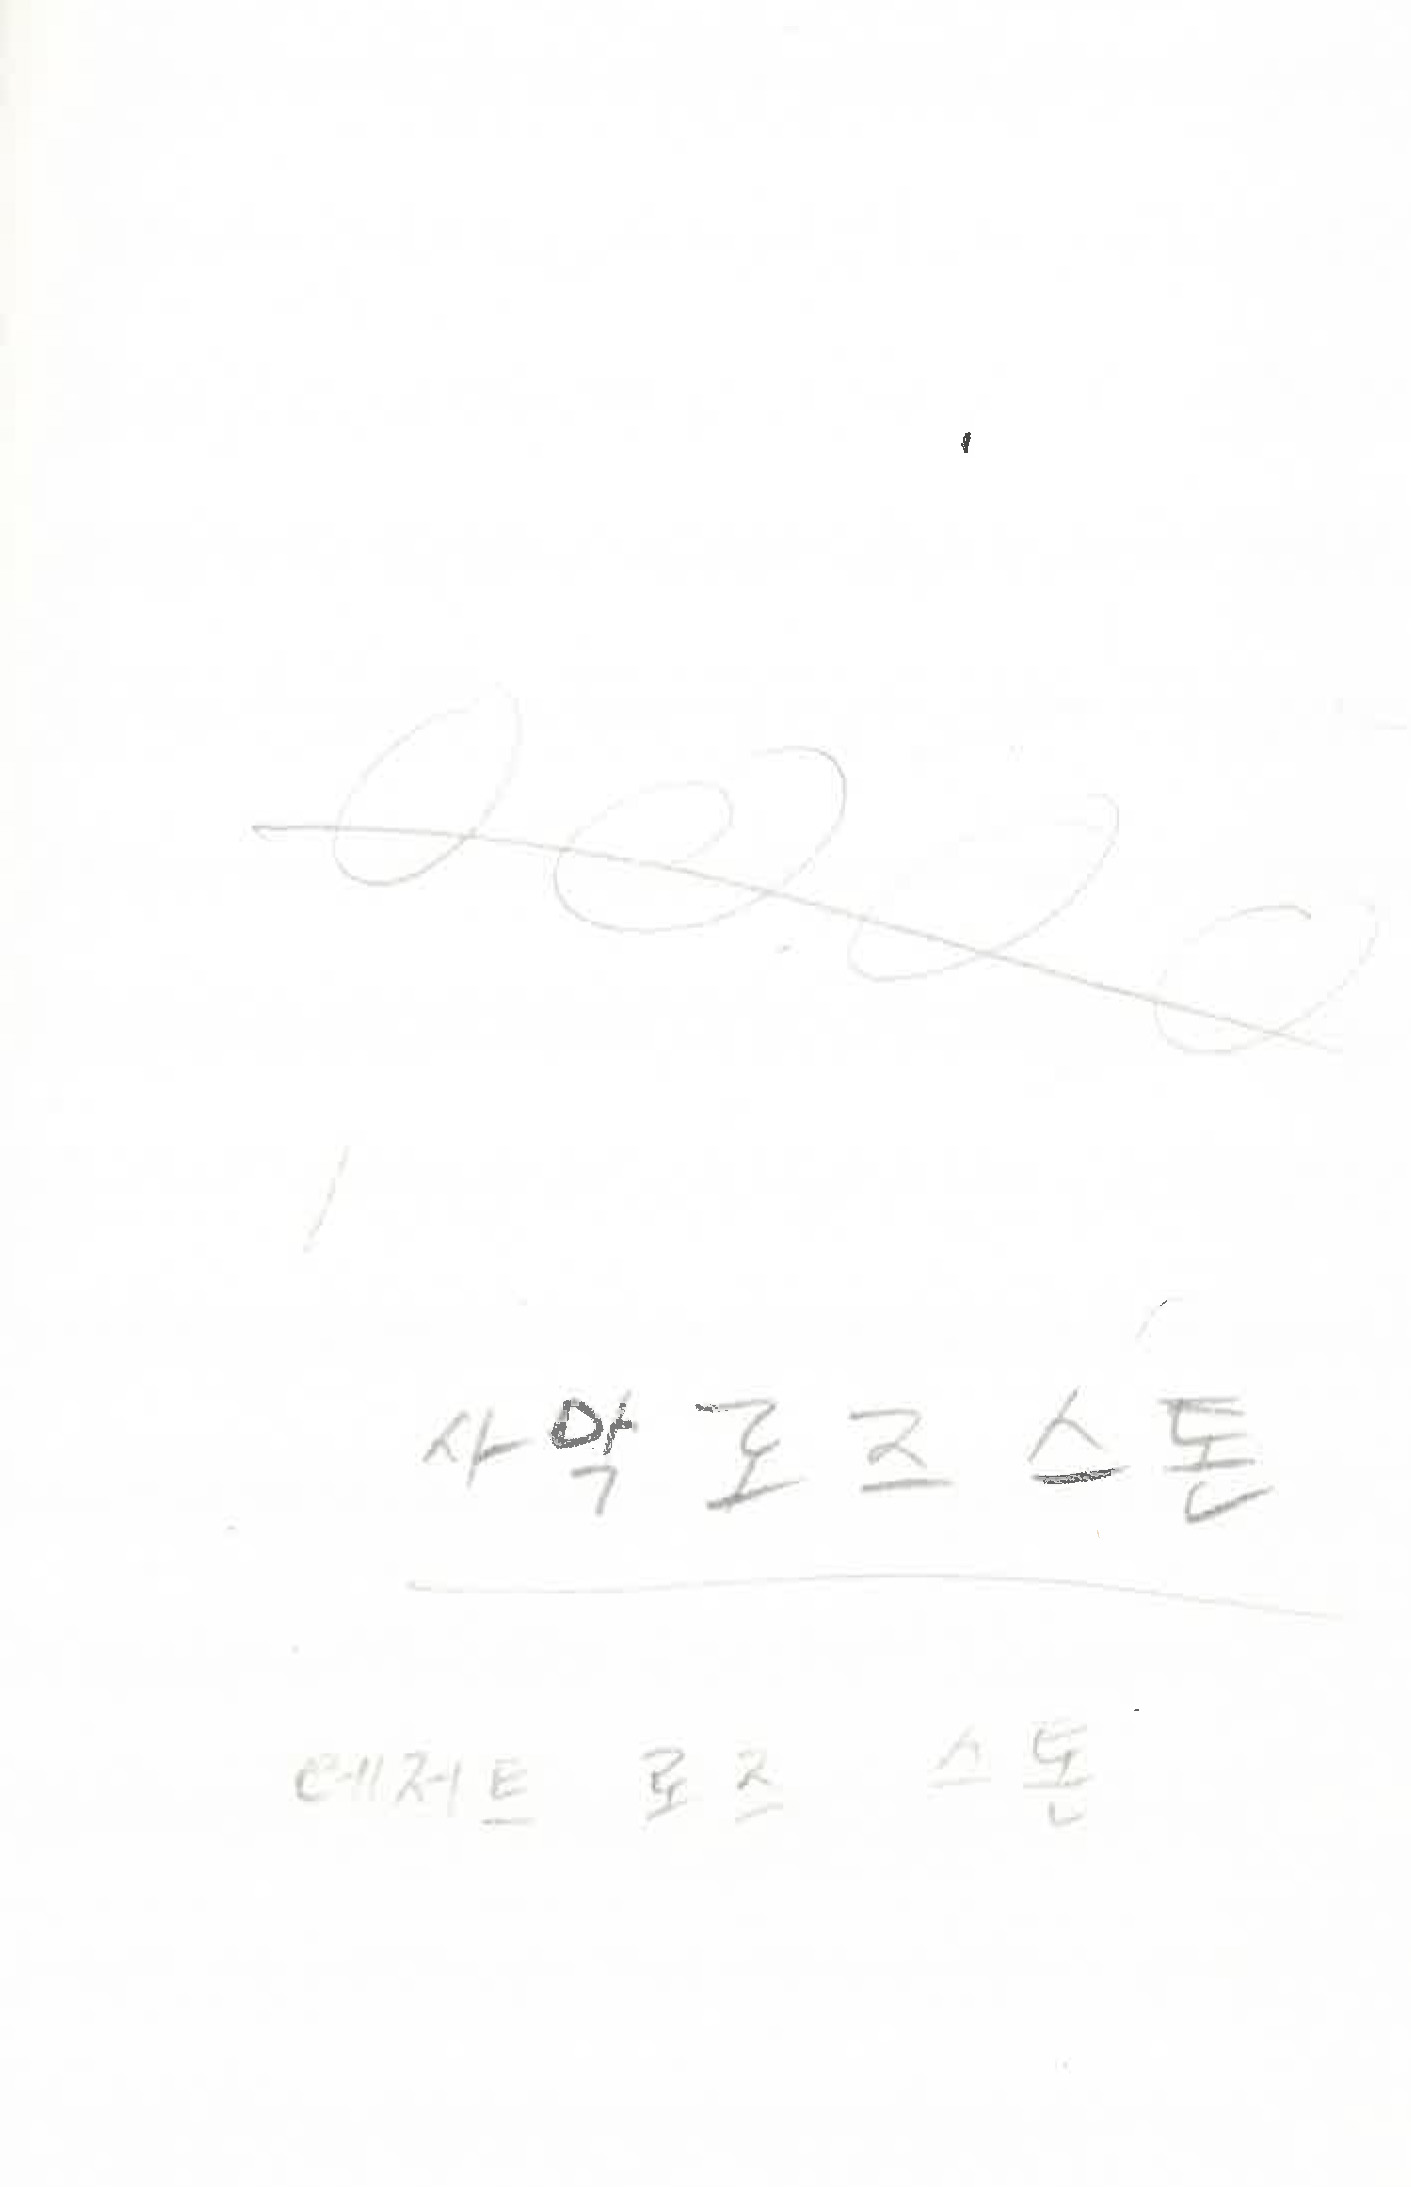 사막로즈스톤
데저트 로즈 스톤